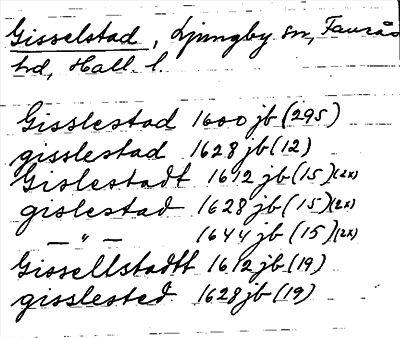 Gisselstad, Ljungby sn, Faurås
hd, Hall. l.
Gisslestad 1600 jb (295)
gisslestad 1628 jb (12)
Gislestadt 1612 jb (15) (2x)
gislestad 1628 jb (15) (2x)
— " — 1644 jb (15) (2x)
Gissellstadtt 1612 jb (19)
gissllested 1628 jb (19)